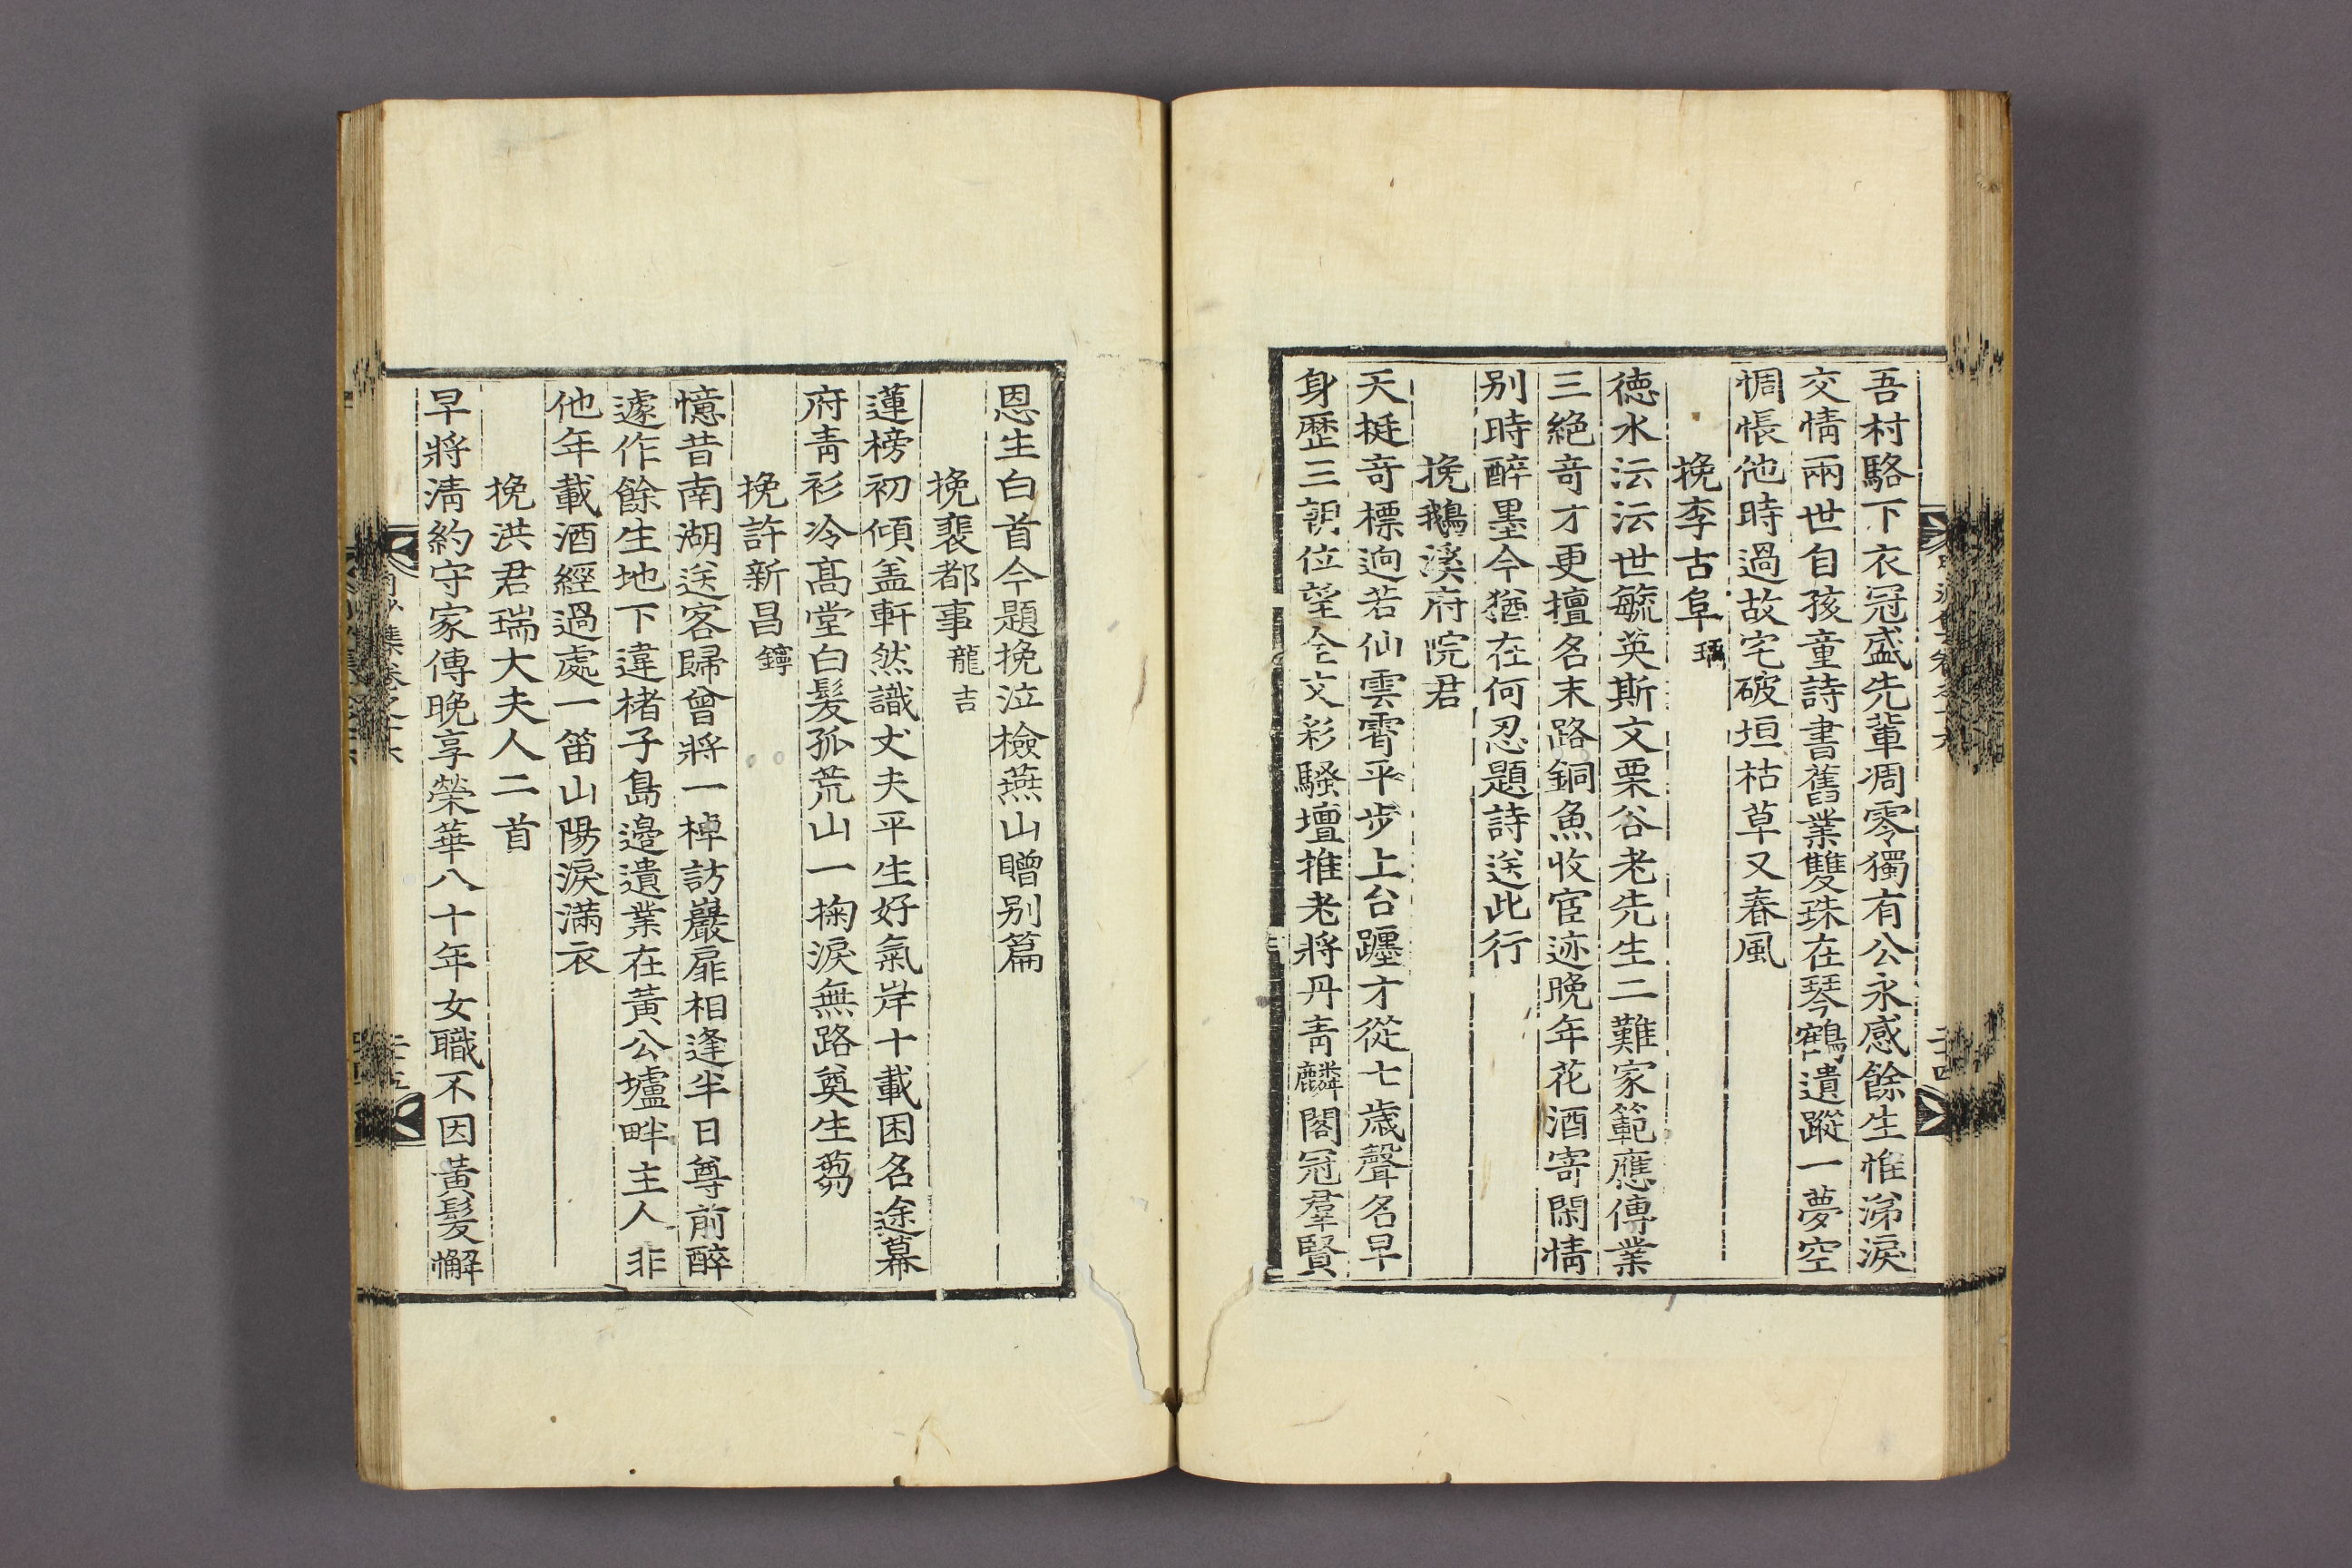 吾村駱下衣冠盛先輩凋零獨有公永感餘生惟涕淚
交情兩世自孩童詩書舊業雙珠在琴鶴遺蹤一夢空
惆悵他時過故宅破垣枯草又春風
挽李古阜瑀
德水沄沄世毓英斯文栗谷老先生二難家範應傳業
三絶奇才更擅名末路銅魚收宦迹晚年花酒寄閑情
別時醉墨今猶在何忍題詩送此行
挽鵝溪府院君
天挺奇標逈若仙雲霄平步上台躔才從七歲聲名早
身歷三朝位望全文彩騷壇推老將丹靑麟閣冠羣賢
恩生白首今題挽泣檢燕山贈別篇
挽裵都事龍吉
蓮榜初傾盖軒然識丈夫平生好氣岸十載困名途幕
府靑衫冷高堂白髮孤荒山一掬淚無路奠生蒭
挽許新昌鑈
憶昔南湖送客歸曾將一棹訪巖扉相逢半日尊前醉
遽作餘生地下違楮子島邊遺業在黃公壚畔主人非
他年載酒經過處一笛山陽淚滿衣
挽洪君瑞大夫人二首
早將淸約守家傳晚享榮華八十年女職不因黃髮懈
集卷之十六
二十五